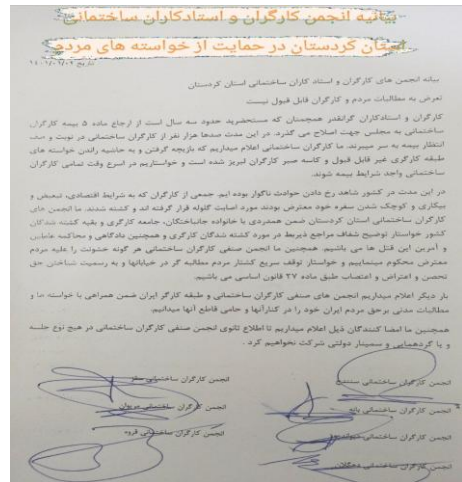 بیانیه انجمن کارگران و استادکاران ساختمانی
استان کردستان در حمایت از خواسته های مردم
بیانه انجمن های کارگران و استاد کاران ساختمانی استان کردستان
تعرض به مطالبات مردم و کارگران قابل قبول نیست
کارگران و استادکاران گرانقدر همچنان که مستحضرید حدود سه سال است از ارجاع ماده ۵ بیمه کارگران
ساختمانی به مجلس جهت اصلاح می گذرد. در این مدت صدها هزار نفر از کارگران ساختمانی در نوبت و صف
انتظار بیمه به سر میبرند. ما کارگران ساختمانی اعلام میداریم که بازیچه گرفتن و به حاشیه راندن خواسته های
طبقه کارگری غیر قابل قبول و کاسه صبر کارگران لبریز شده است و خواستاریم در اسرع وقت تمامی کارگران
ساختمانی واجد شرایط بیمه شوند.
در این مدت در کشور شاهد رخ دادن حوادث ناگوار بوده ایم. جمعی از کارگران که به شرایط اقتصادی، تبعیض و
بیکاری و کوچک شدن سفره خود معترض بودند مورد اصابت گلوله قرار گرفته اند و کشته شدند. ما انجمن های
کارگران ساختمانی استان کردستان ضمن همدردی با خانواده جانباختگان، جامعه کارگری و بقیه کشته شدگان
کشور خواستار توضیح شفاف مراجع ذیربط در مورد کشته شدگان کارگری و همچنین دادگاهی و محاکمه عاملین
و آمرین این قتل ها می باشیم. همچنین ما انجمن صنفی کارگران ساختمانی هر گونه خشونت را علیه مردم
معترض محکوم مینماییم و خواستار توقف سریع کشتار مردم مطالبه گر در خیابانها و به رسمیت شناختن حق
تحصن و اعتراض و اعتصاب طبق ماده ۲۷ قانون اساسی می باشیم.
بار دیگر اعلام میداریم انجمن های صنفی کارگران ساختمانی و طبقه کارگر ایران ضمن همراهی با خواسته ها و
مطالبات مدنی برحق مردم ایران خود را در کنارآنها و حامی قاطع آنها میدانیم.
همچنین ما امضا کنندگان ذیل اعلام میداریم تا اطلاع ثانوی انجمن صنفی کارگران ساختمانی در هیچ نوع جلسه
و یا گردهمایی و سمینار دولتی شرکت نخواهیم کرد.
انجمن کارگران ساختمانی سنندج
انجمن کارگران ساختمانی سقز
انجمن کارگران ساختمانی بانه
انجمن کارگران ساختمانی مریوان
انجمن کارگران ساختمانی
انجمن کارگران ساختمانی قروه
انجمن کارگران ساختمانی دهگلان